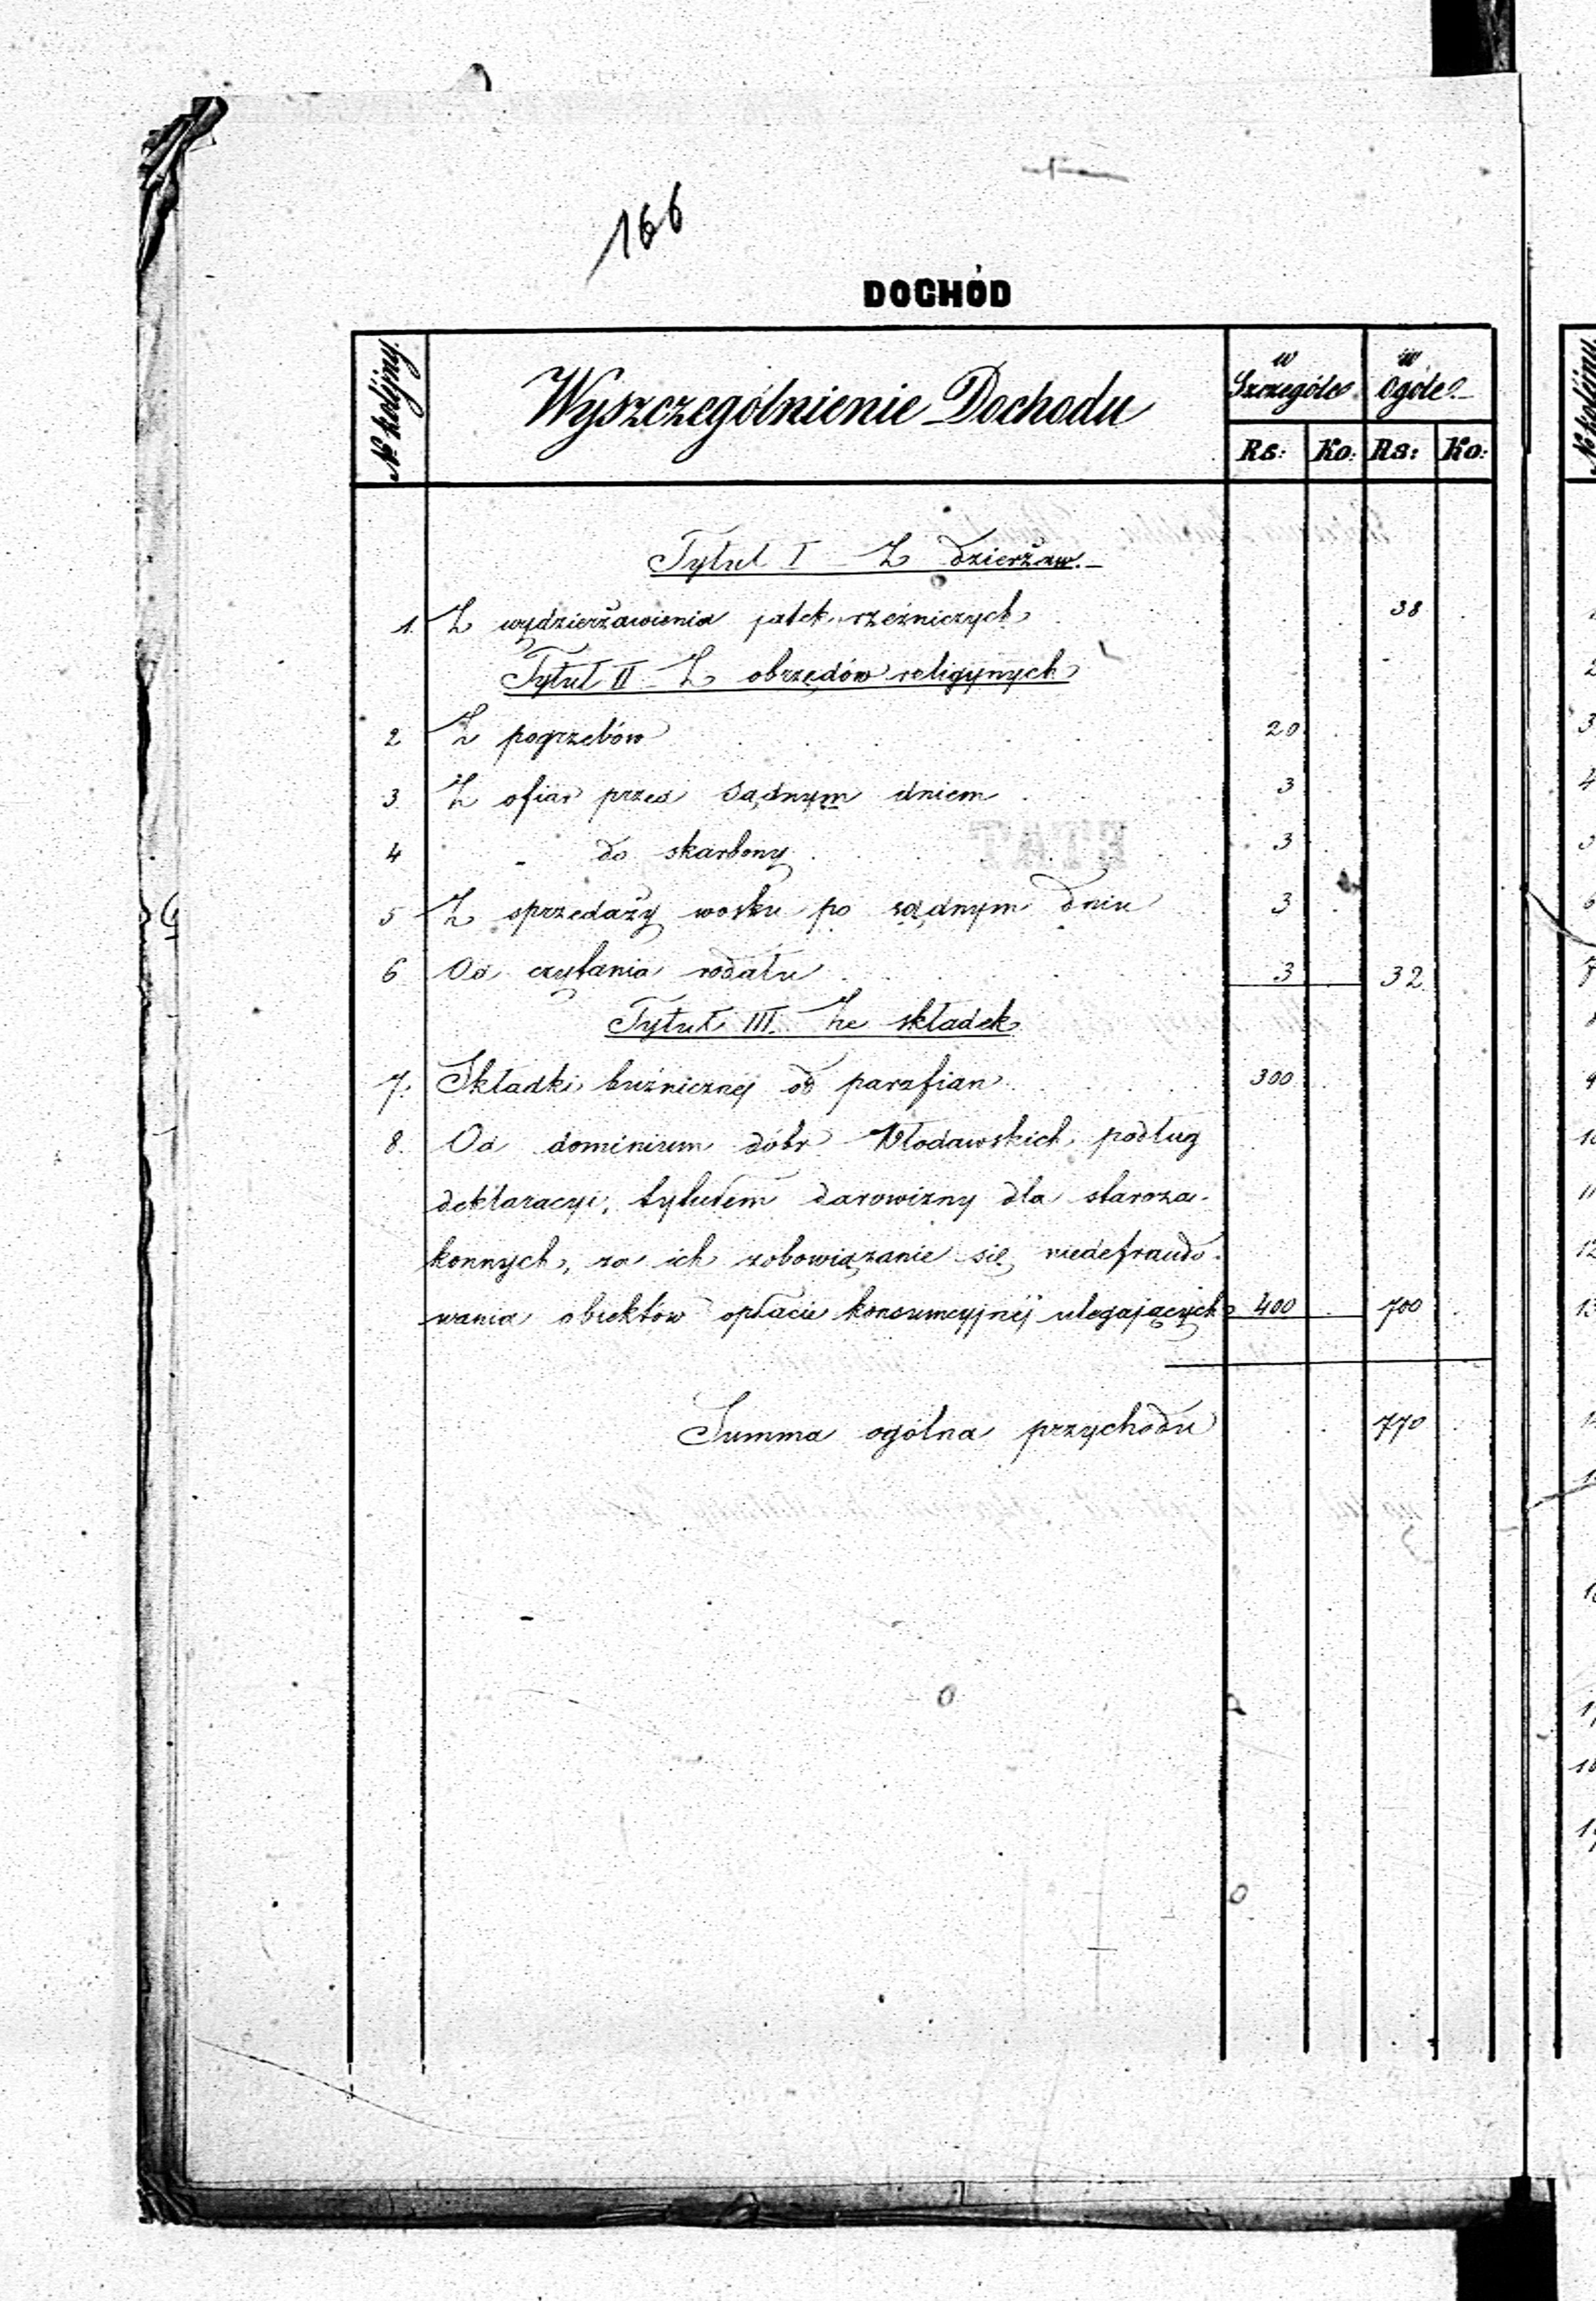 166
DOCHÓD
№ kolijny. Wyszczególnienie Dochodu w Szczególe w Ogóle
Rs: Ko: Rs: Ko:
Tytuł I Z dzierżaw.
1. Z wydzierżawienia jatek rzeźniczych 38
Tytuł II Z obrzędów religijnych
2 Z pogrzebów 20
3. Z ofiar przed Sądnym dniem 3
4 - do skarbony 3
5 Z sprzedaży wosku po sądnym dniu 3
6 Od czytania rodału 3 32
Tytuł III. Ze składek
7. Składki bużnicznej od parafian 300
8. Od dominium dóbr Włodawskich podług
deklaracyi, tytułem darowizny dla staroza-
konnych, za ich zobowiązanie się niedefraudo-
wania obiektów opłacie konsumcyjnéj ulegających 400 700
Summa ogólna przychodu 770